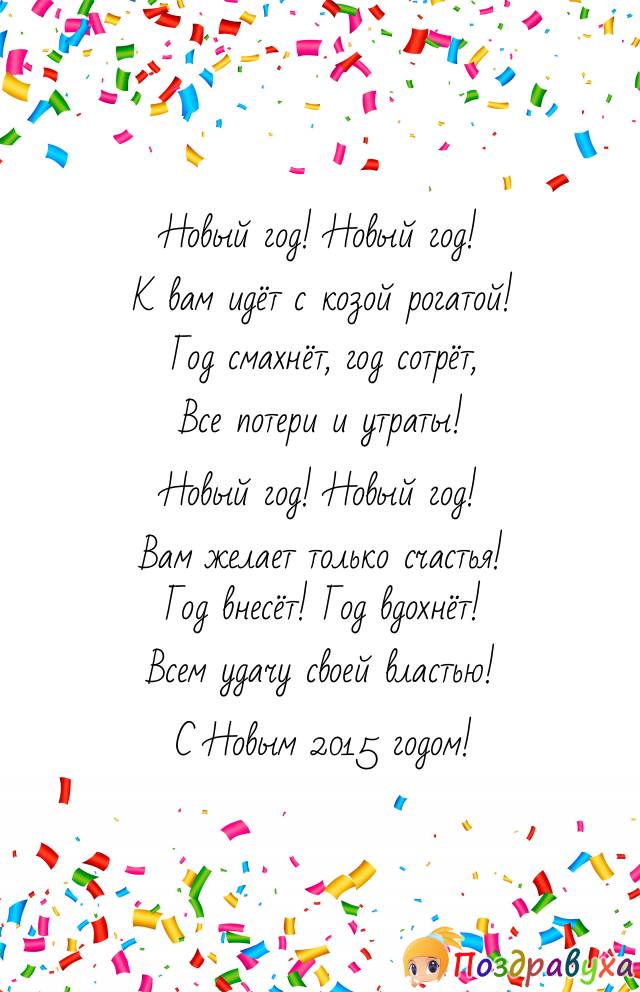 Новый год! Новый год!
К вам идёт с козой рогатой!
Год смахнёт, год сотрёт,
Все потери и утраты!
Новый год! Новый год!
Вам желает только счастья!
Год внесёт! Год вдохнёт!
Всем удачу своей властью!
С Новым 2015 годом!
Поздравуха